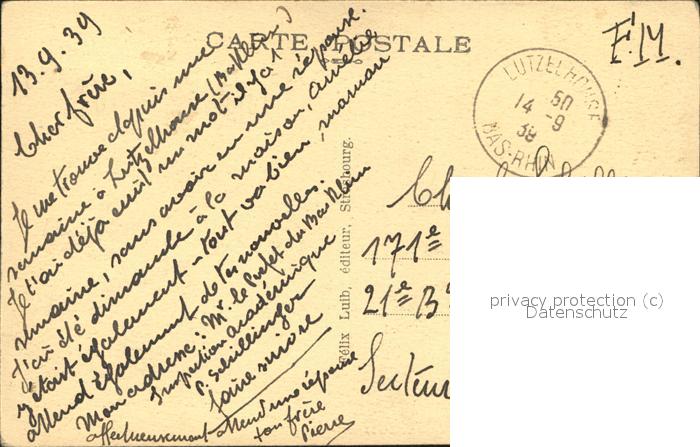 CARTE POSTALE
F.M.
13.9.39
Cher frère,
Je me trouve depuis une
semaine à Lutzelhouse (Bas Rhin)
Je t'ai déjà écrit un mot il y a 1
semaine, sans avoir eu une réponse.
J'ai été dimanche à la maison, Amélie
y était également - tout va bien - maman
attend également de tes nouvelles.
Mon adresse: Mr. le Préfet du Bas Rhin
Inspection académique
P. Schillinger
faire suivre
affectueusement attend une réponse
ton frère
Pierre
Félix Luib, éditeur, Strasbourg.
LUTZELHOUSE
50
14 -9
39
BAS-RHIN
Ch
171e
21e B
Secteur
privacy protection (c)
Datenschutz